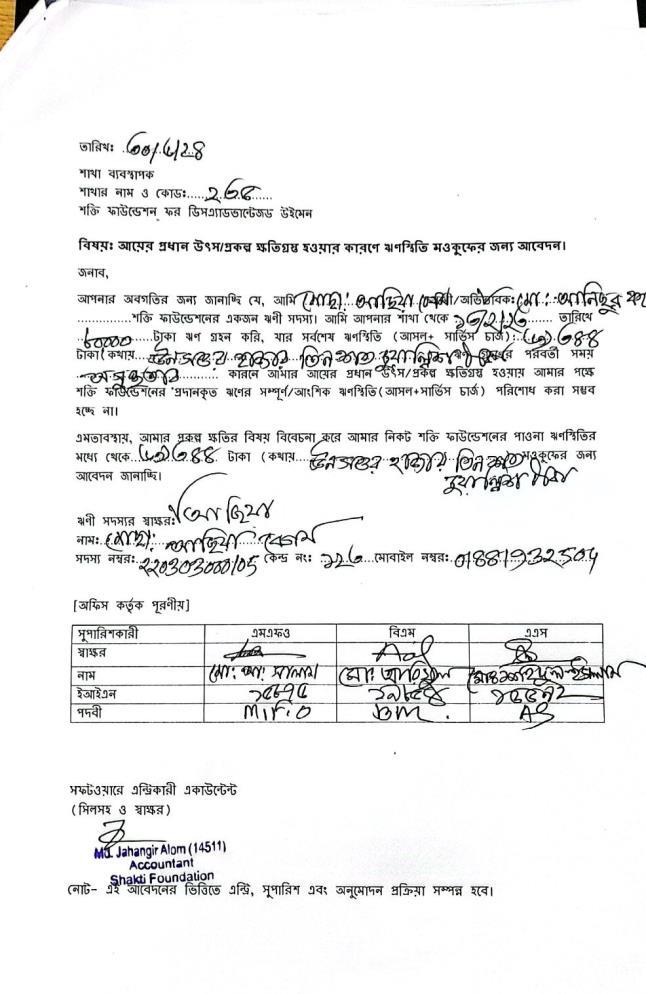 তারিখঃ
শাখা ব্যবস্থাপক
শাখার নাম ও কোডঃ
শক্তি ফাউন্ডেশন ফর ডিসএ্যাডভান্টেজড উইমেন
বিষয়ঃ আয়ের প্রধান উৎস/প্রকল্প ক্ষতিগ্রস্থ হওয়ার কারণে ঋণস্থিতি মওকুফের জন্য আবেদন।
জনাব,
আপনার অবগতির জন্য জানাচ্ছি যে, আমি মোছা: আজিয়া /অভিভাবক: মো: আনিছুর
শক্তি ফাউন্ডেশনের একজন ঋণী সদস্য। আমি আপনার শাখা থেকে তারিখে
৮০০০০ টাকা ঋণ গ্রহন করি, যার সর্বশেষ ঋণস্থিতি (আসল+ সার্ভিস চার্জ):
টাকা(কথায় উনসত্তর হাজার তিন শত পরবর্তী সময়
অসুস্থতার কারনে আমার আয়ের প্রধান উৎস/প্রকল্প ক্ষতিগ্রস্থ হওয়ায় আমার পক্ষে
শক্তি ফাউন্ডেশনের প্রদানকৃত ঋণের সম্পূর্ণ/আংশিক ঋণস্থিতি(আসল+সার্ভিস চার্জ) পরিশোধ করা সম্ভব
হচ্ছে না।
এমতাবস্থায়, আমার প্রকল্প ক্ষতির বিষয় বিবেচনা করে আমার নিকট শক্তি ফাউন্ডেশনের পাওনা ঋণস্থিতির
মধ্যে থেকে টাকা (কথায় উনসত্তর হাজার তিন শত মওকুফের জন্য
আবেদন জানাচ্ছি।
ঋণী সদস্যের স্বাক্ষর: আজিয়া
নাম: মোছা: আজিয়া বেগম
সদস্য নম্বর: 220303000105 কেন্দ্র নং: ১২৬ মোবাইল নম্বর: 01881932504
[অফিস কর্তৃক পূরণীয়]
সুপারিশকারী এমএফও বিএম এএস
স্বাক্ষর
নাম মো: আ: সালাম মো: আরিফুল
ইআইএন
পদবী M.F.O BM. AS
সফটওয়ারে এন্ট্রিকারী একাউন্টেন্ট
(সিলসহ ও স্বাক্ষর)
Md. Jahangir Alom (14511)
Accountant
Shakti Foundation
নোট- এই আবেদনের ভিত্তিতে এন্ট্রি, সুপারিশ এবং অনুমোদন প্রক্রিয়া সম্পন্ন হবে।